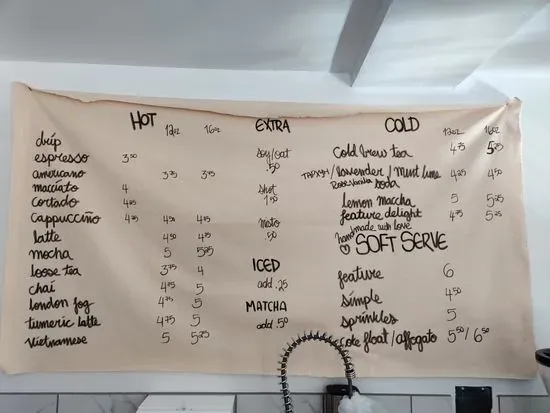 HOT 12oz 16oz
drip
espresso 3⁵⁰
americano 3⁷⁵
macciato 4
cortado
cappuccino 4⁷⁵
latte 4⁵⁰ 4⁷⁵
mocha 5 5²⁵
loose tea 3⁷⁵ 4
chai 4⁷⁵ 5
london fog 4⁷⁵ 5
tumeric latte 4⁷⁵ 5
vietnamese 5 5²⁵
EXTRA
soy/oat
.50
shot
.50
ICED
add .25
MATCHA
add .50
COLD 12oz 16oz
cold brew tea 4⁷⁵ 5²⁵
lavender / mint lime 4²⁵ 4⁵⁰
soda
lemon maccha 5 5²⁵
feature delight 4⁷⁵ 5²⁵
hand made with love
SOFT SERVE
feature 6
simple 4⁵⁰
sprinkles 5
float / affogato 5⁵⁰ / 6⁵⁰